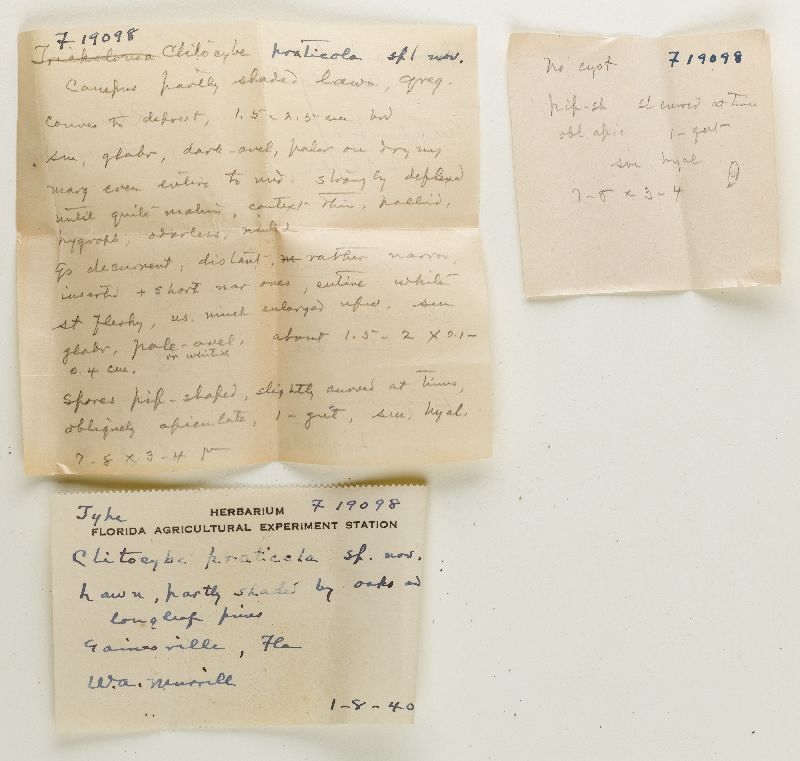 F 19098
Tricholoma Clitocybe praticola sp. nov.
Campus partly shaded lawn, greg.
convex to depress, 1.5-2.5 cm brd
sm, glabr, dark-avel, paler on drying
marg even entire to und. strongly deflexed
until quite mature, context thin, pallid,
hygroph, odorless, mild
Gs decurrent, distant, rather narrow,
inserted + short nar ones, entire white
st fleshy, us. much enlarged upwd, sm
glabr, pale-avel, about 1.5-2 x 0.1-
or whitish
0.4 cm.
Spores pip-shaped, slightly curved at times,
obliquely apiculate, 1-gut, sm, hyal.
7-8 x 3-4 μ
No cyst F 19098
pip-sh sl curved at times
obl apic 1-gut
sm hyal
7-8 x 3-4
Type HERBARIUM F 19098
FLORIDA AGRICULTURAL EXPERIMENT STATION
Clitocybe praticola sp. nov.
Lawn, partly shaded by oaks and
longleaf pines
Gainesville, Fla
W.A. Murrill
1-8-40